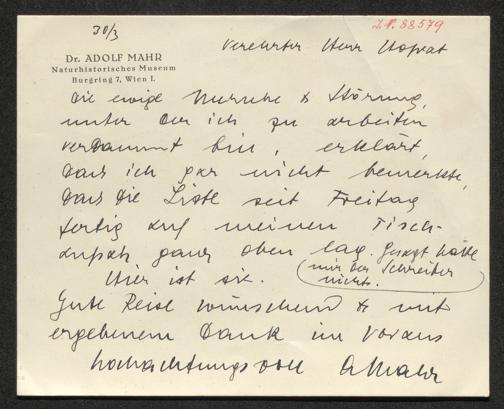 30/3
I.N. 88579
Dr. ADOLF MAHR
Naturhistorisches Museum
Burgring 7, Wien I.
Verehrter Herr Hofrat
Die ewige Unruhe & Störung,
unter der ich zu arbeiten
verdammt bin, erklärt,
dass ich gar nicht bemerkte,
dass die Liste seit Freitag
fertig auf meinem Tisch-
aufsatz ganz oben lag. Gesagt hatte
mir der Schreiber
nichts.
Hier ist sie.
Gute Reise wünschend & mit
ergebenem Dank im Voraus
hochachtungsvoll AMahr